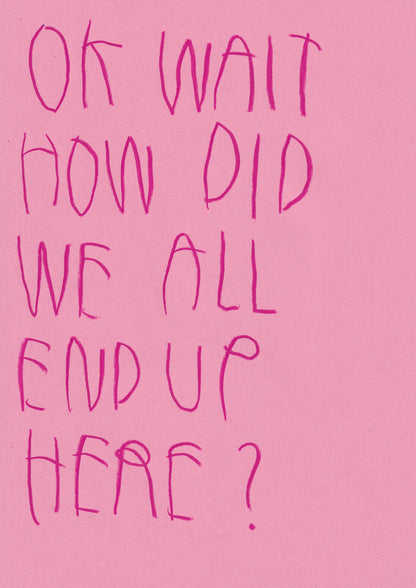 OK WAIT
HOW DID
WE ALL
END UP
HERE?